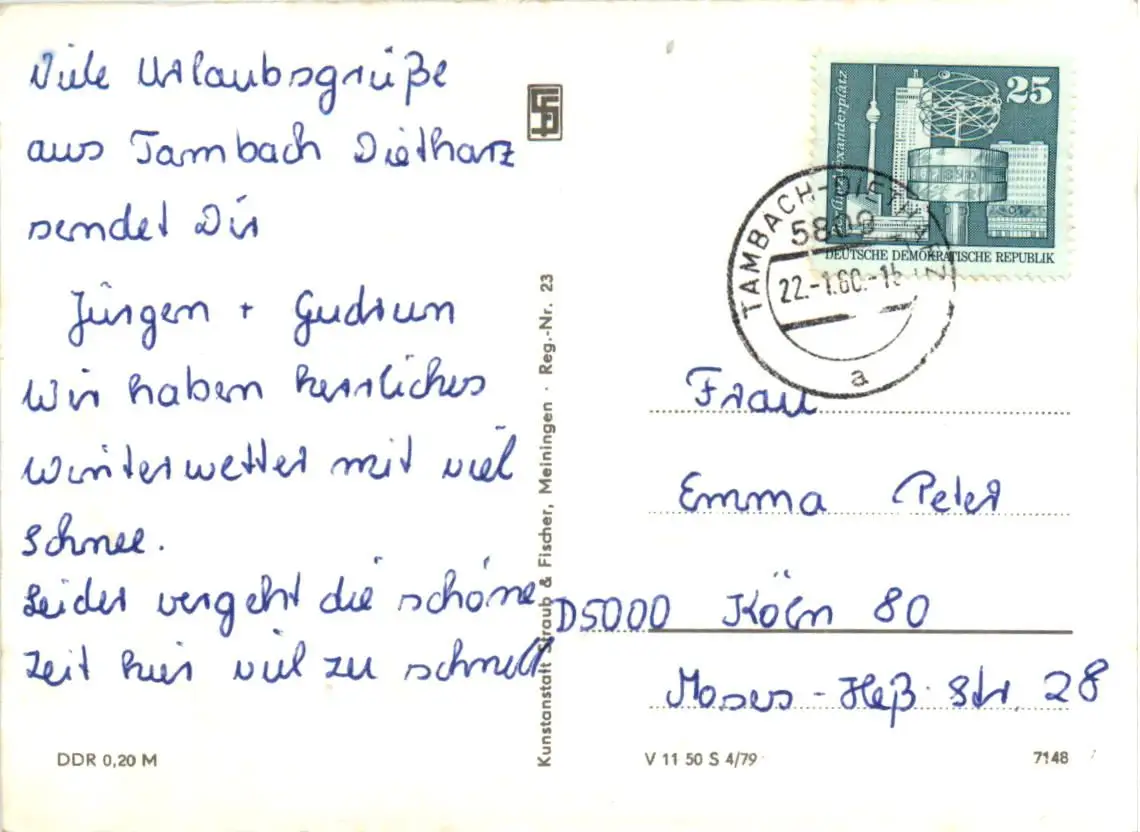 Viele Urlaubsgrüße
aus Tambach Dietharz
sendet Dir
Jürgen + Gudrun
Wir haben herrliches
Winterwetter mit viel
Schnee.
Leider vergeht die schöne
Zeit hier viel zu schnell
DDR 0,20 M
Kunstanstalt Straub & Fischer, Meiningen · Reg.-Nr. 23
Berlin, Alexanderplatz
25
DEUTSCHE DEMOKRATISCHE REPUBLIK
TAMBACH-DIETHARZ
5809
22.-1.80.-15
a
Frau
Emma Peter
D5000 Köln 80
Moses-Heß-Str. 28
V 11 50 S 4/79
7148